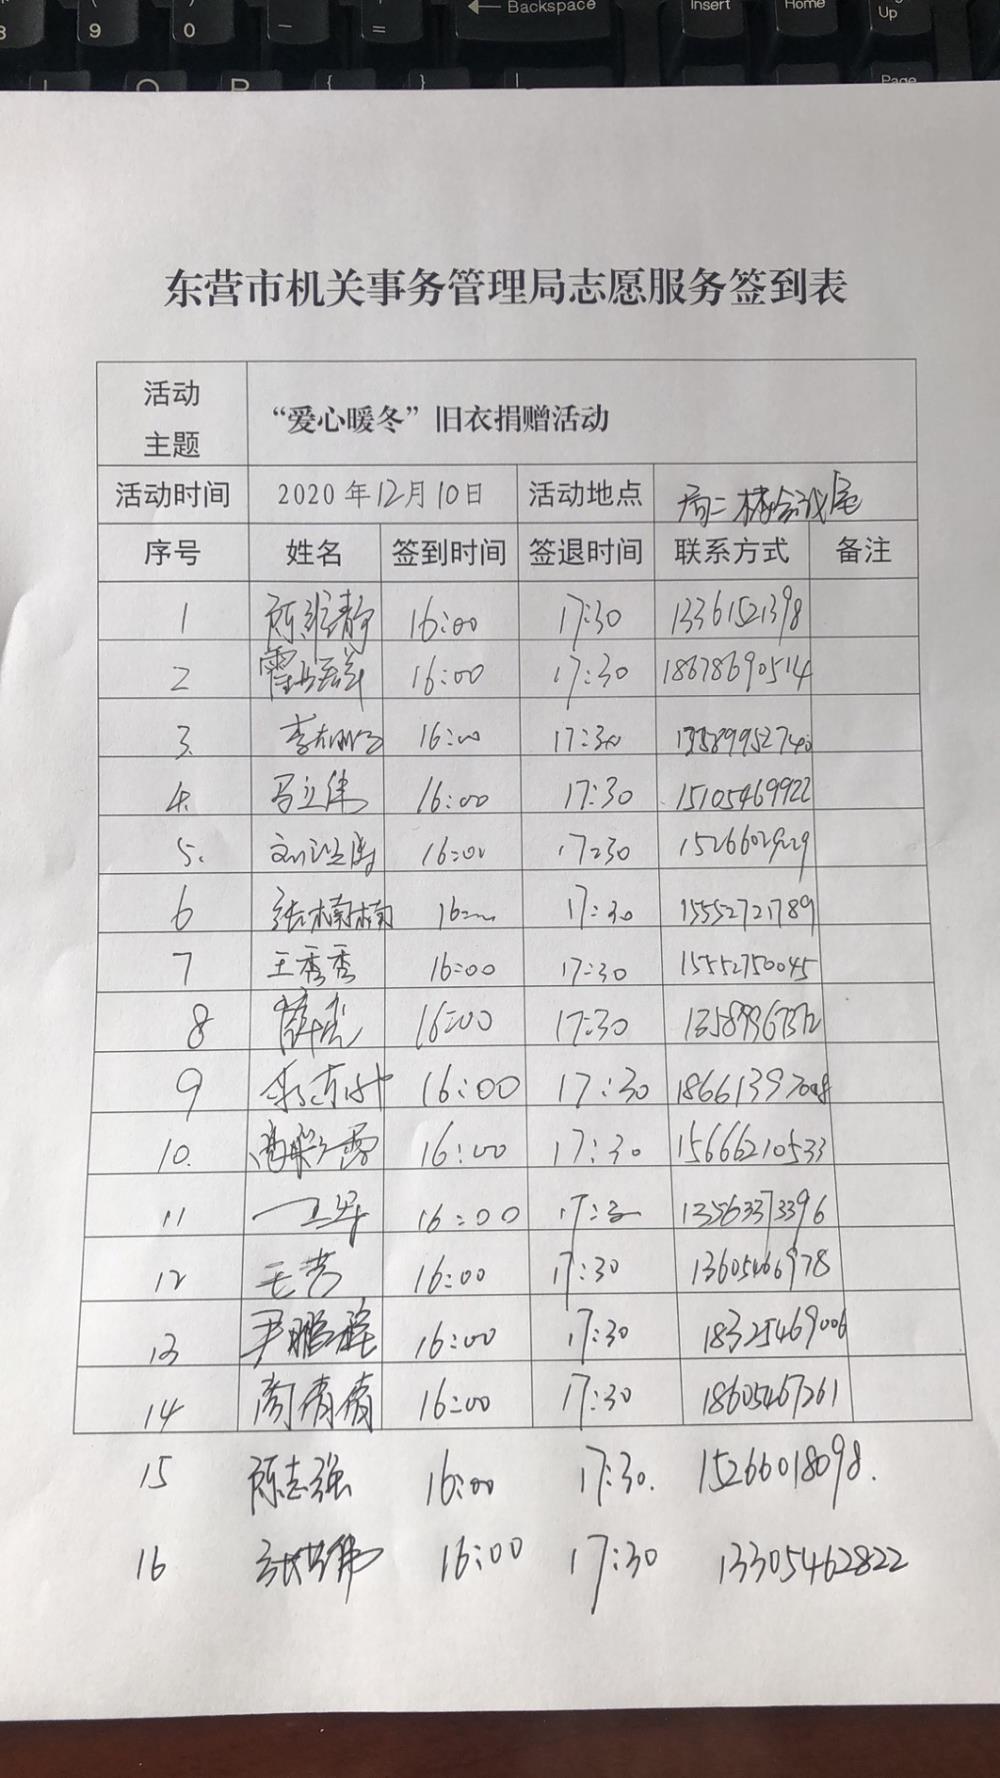 8
9
0
Backspace
Insert
Home
Up
Page
东营市机关事务管理局志愿服务签到表
活动
主题
“爱心暖冬”旧衣捐赠活动
活动时间 2020年12月10日 活动地点 局二楼会议室
序号 姓名 签到时间 签退时间 联系方式 备注
1 16:00 17:30 13361521398
2 16:00 17:30 18678690514
3. 16:00 17:30 13589952740
4. 马立伟 16:00 17:30 15105469922
5. 16:00 17:30 15266029229
6 张楠楠 16: 17:30 15552721789
7 王秀秀 16:00 17:30 15552750045
8 16:00 17:30
9 16:00 17:30
10. 16:00 17:30 15666210533
11 16:00 13563373396
12 16:00 17:30 13605466978
13 尹鹏 16:00 17:30 18325469006
14 16:00 17:30 18605467261
15 陈志强 16:00 17:30. 15266018098.
16 16:00 17:30 13305462822